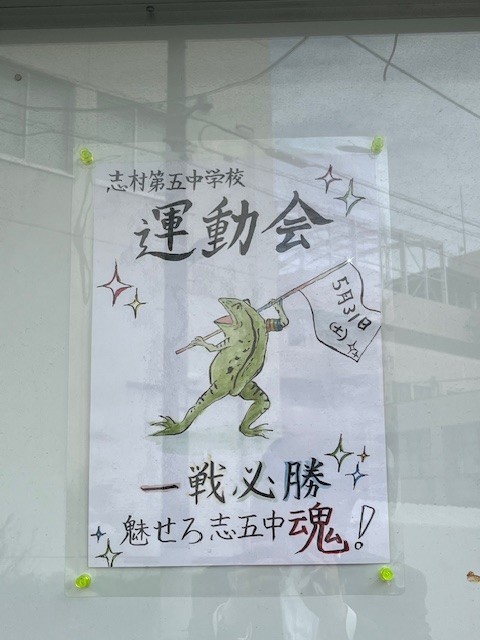 志村第五中学校
運動会
5月31日
(土)
一戦必勝
魅せろ志五中魂!